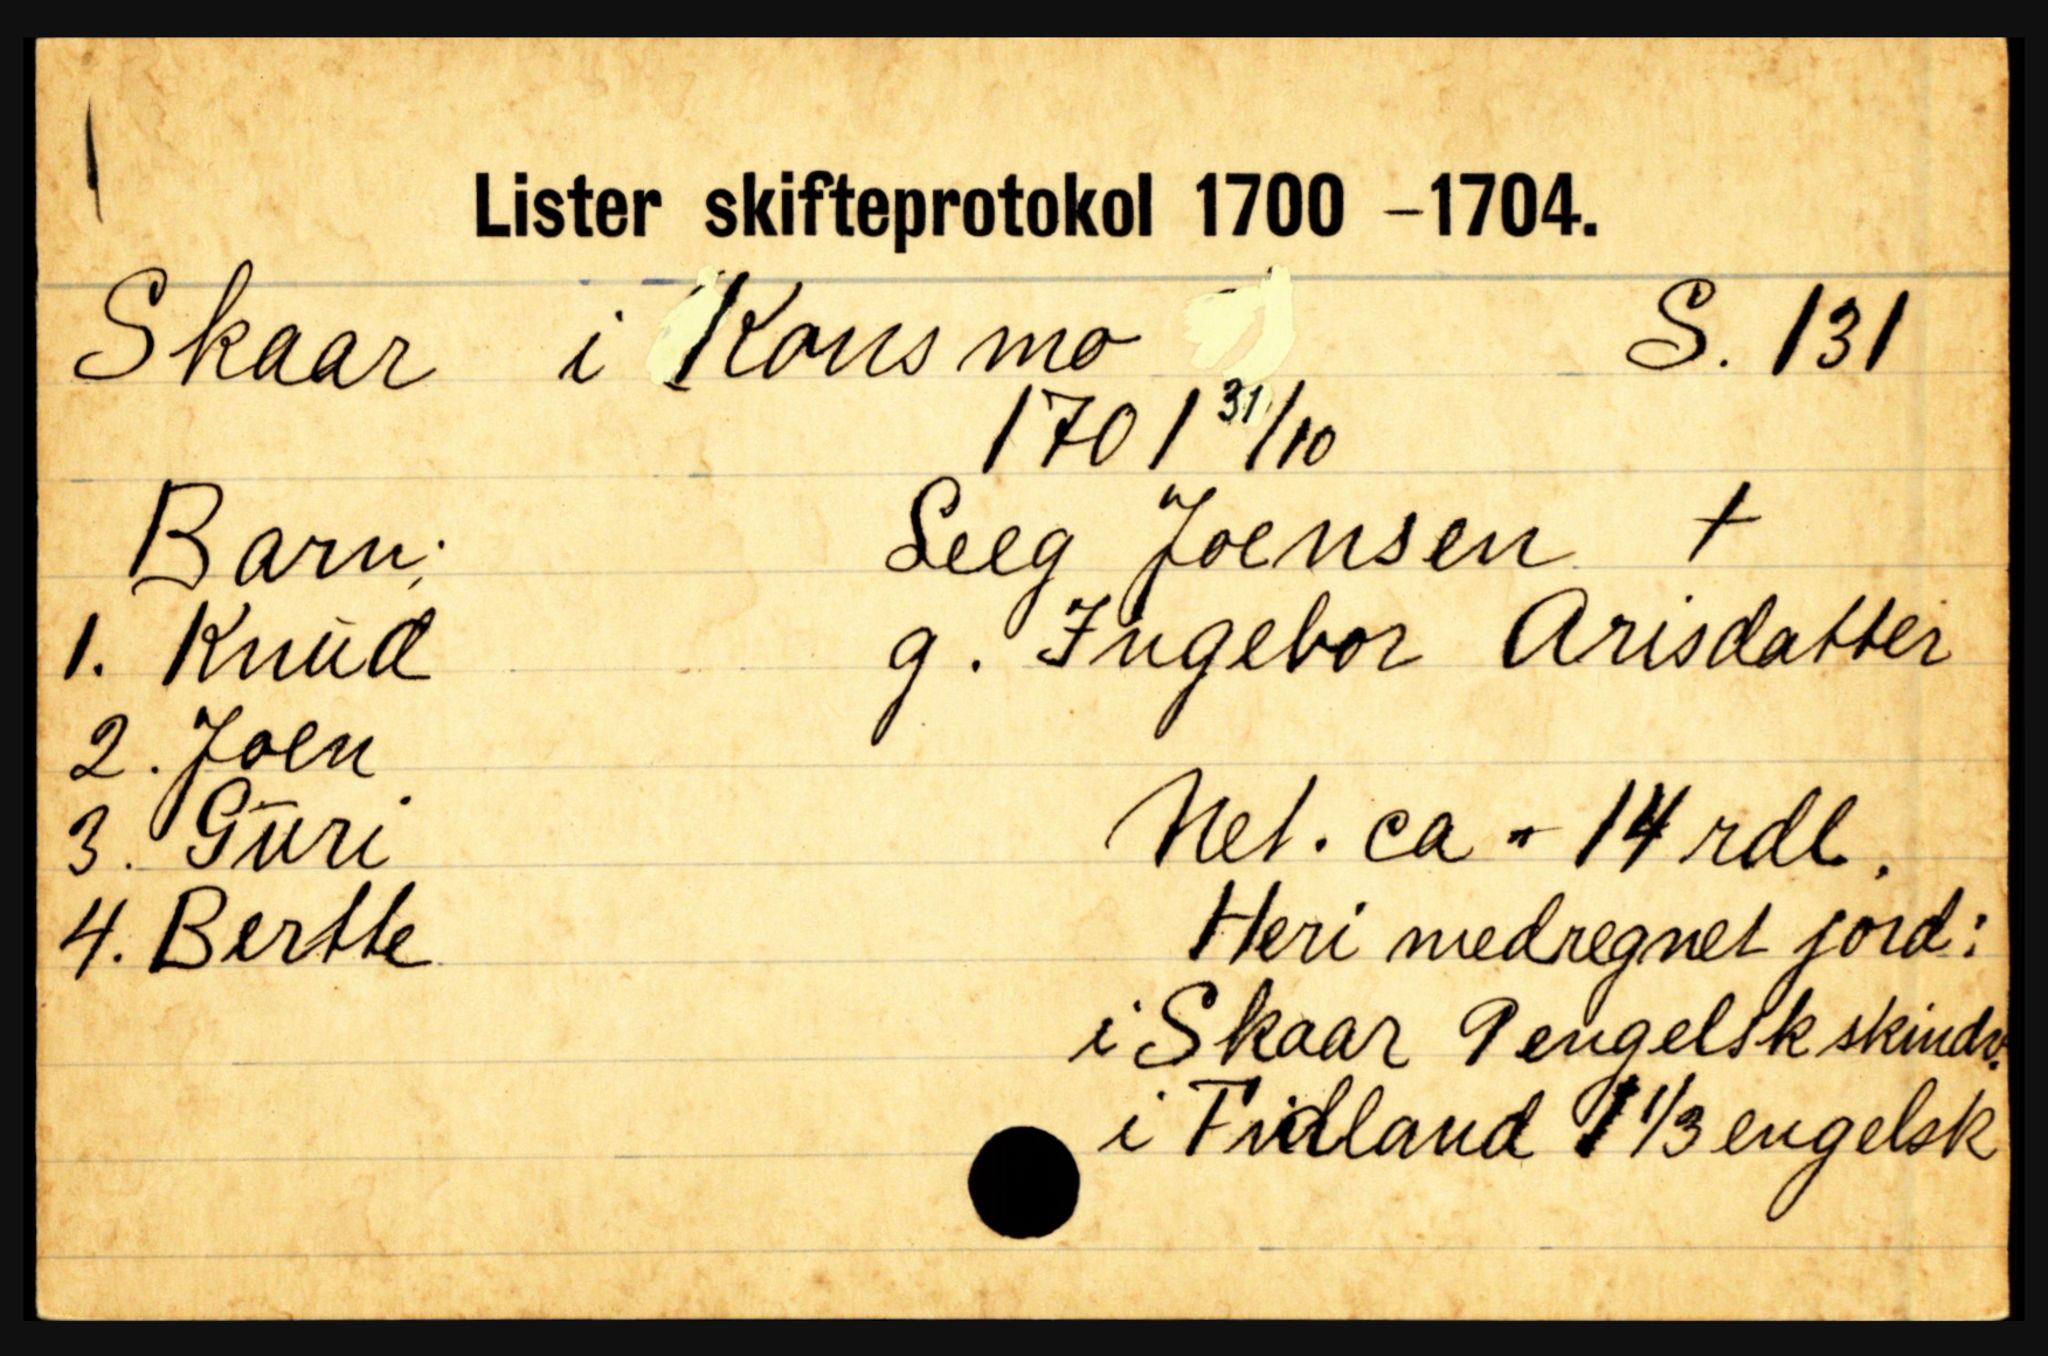 Lister skifteprotokol 1700 – 1704.
Skaar i Konsmo S. 131
1701 31/10
Barn: Seeg Joensen +
1. Knud g. Ingebor Arisdatter
2. Joen
3. Guri Net. ca - 14 rdl.
4. Bertte Heri medregnet jord:
i Skaar 9 engelsk skindv.
i Fidland 1 1/3 engelsk